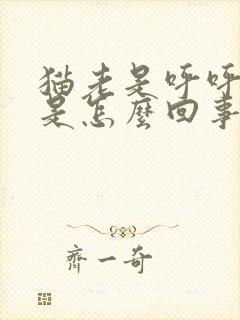 猫老是呼呼
是怎麽回事
齊一奇